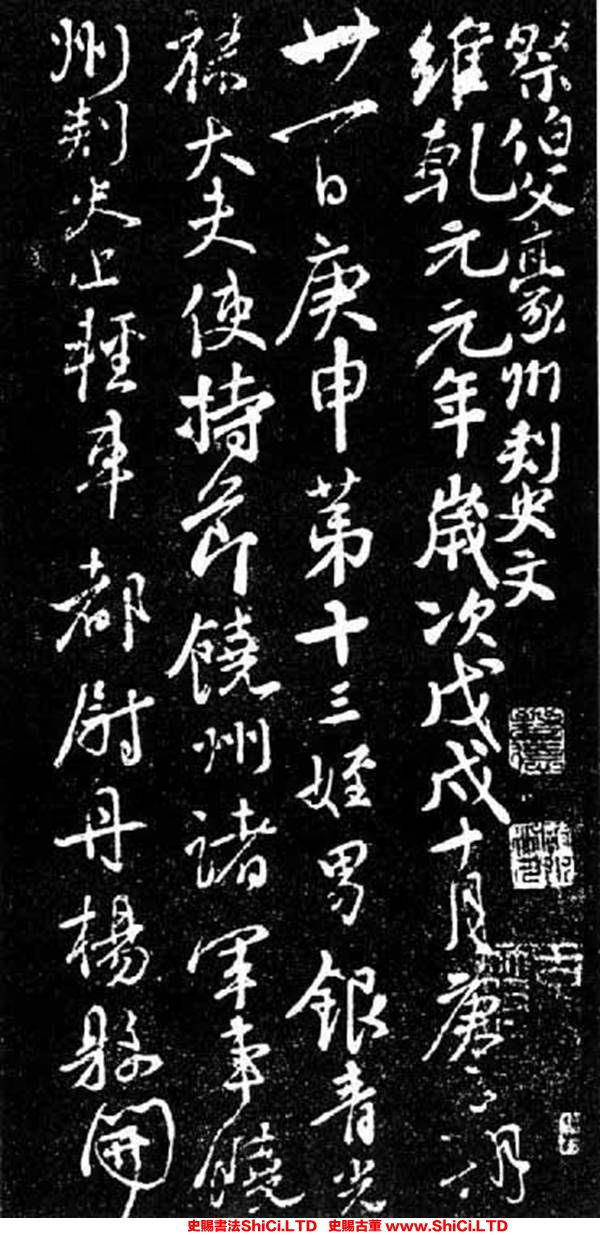 祭伯父豪州刺史文
維乾元元年歲次戊戌十月庚子朔
廿一日庚申第十三姪男銀青光
祿大夫使持節饒州諸軍事饒
州刺史上輕車都尉丹楊縣開
史賜書法ShiCi.LTD 史賜古董 www.ShiCi.LTD